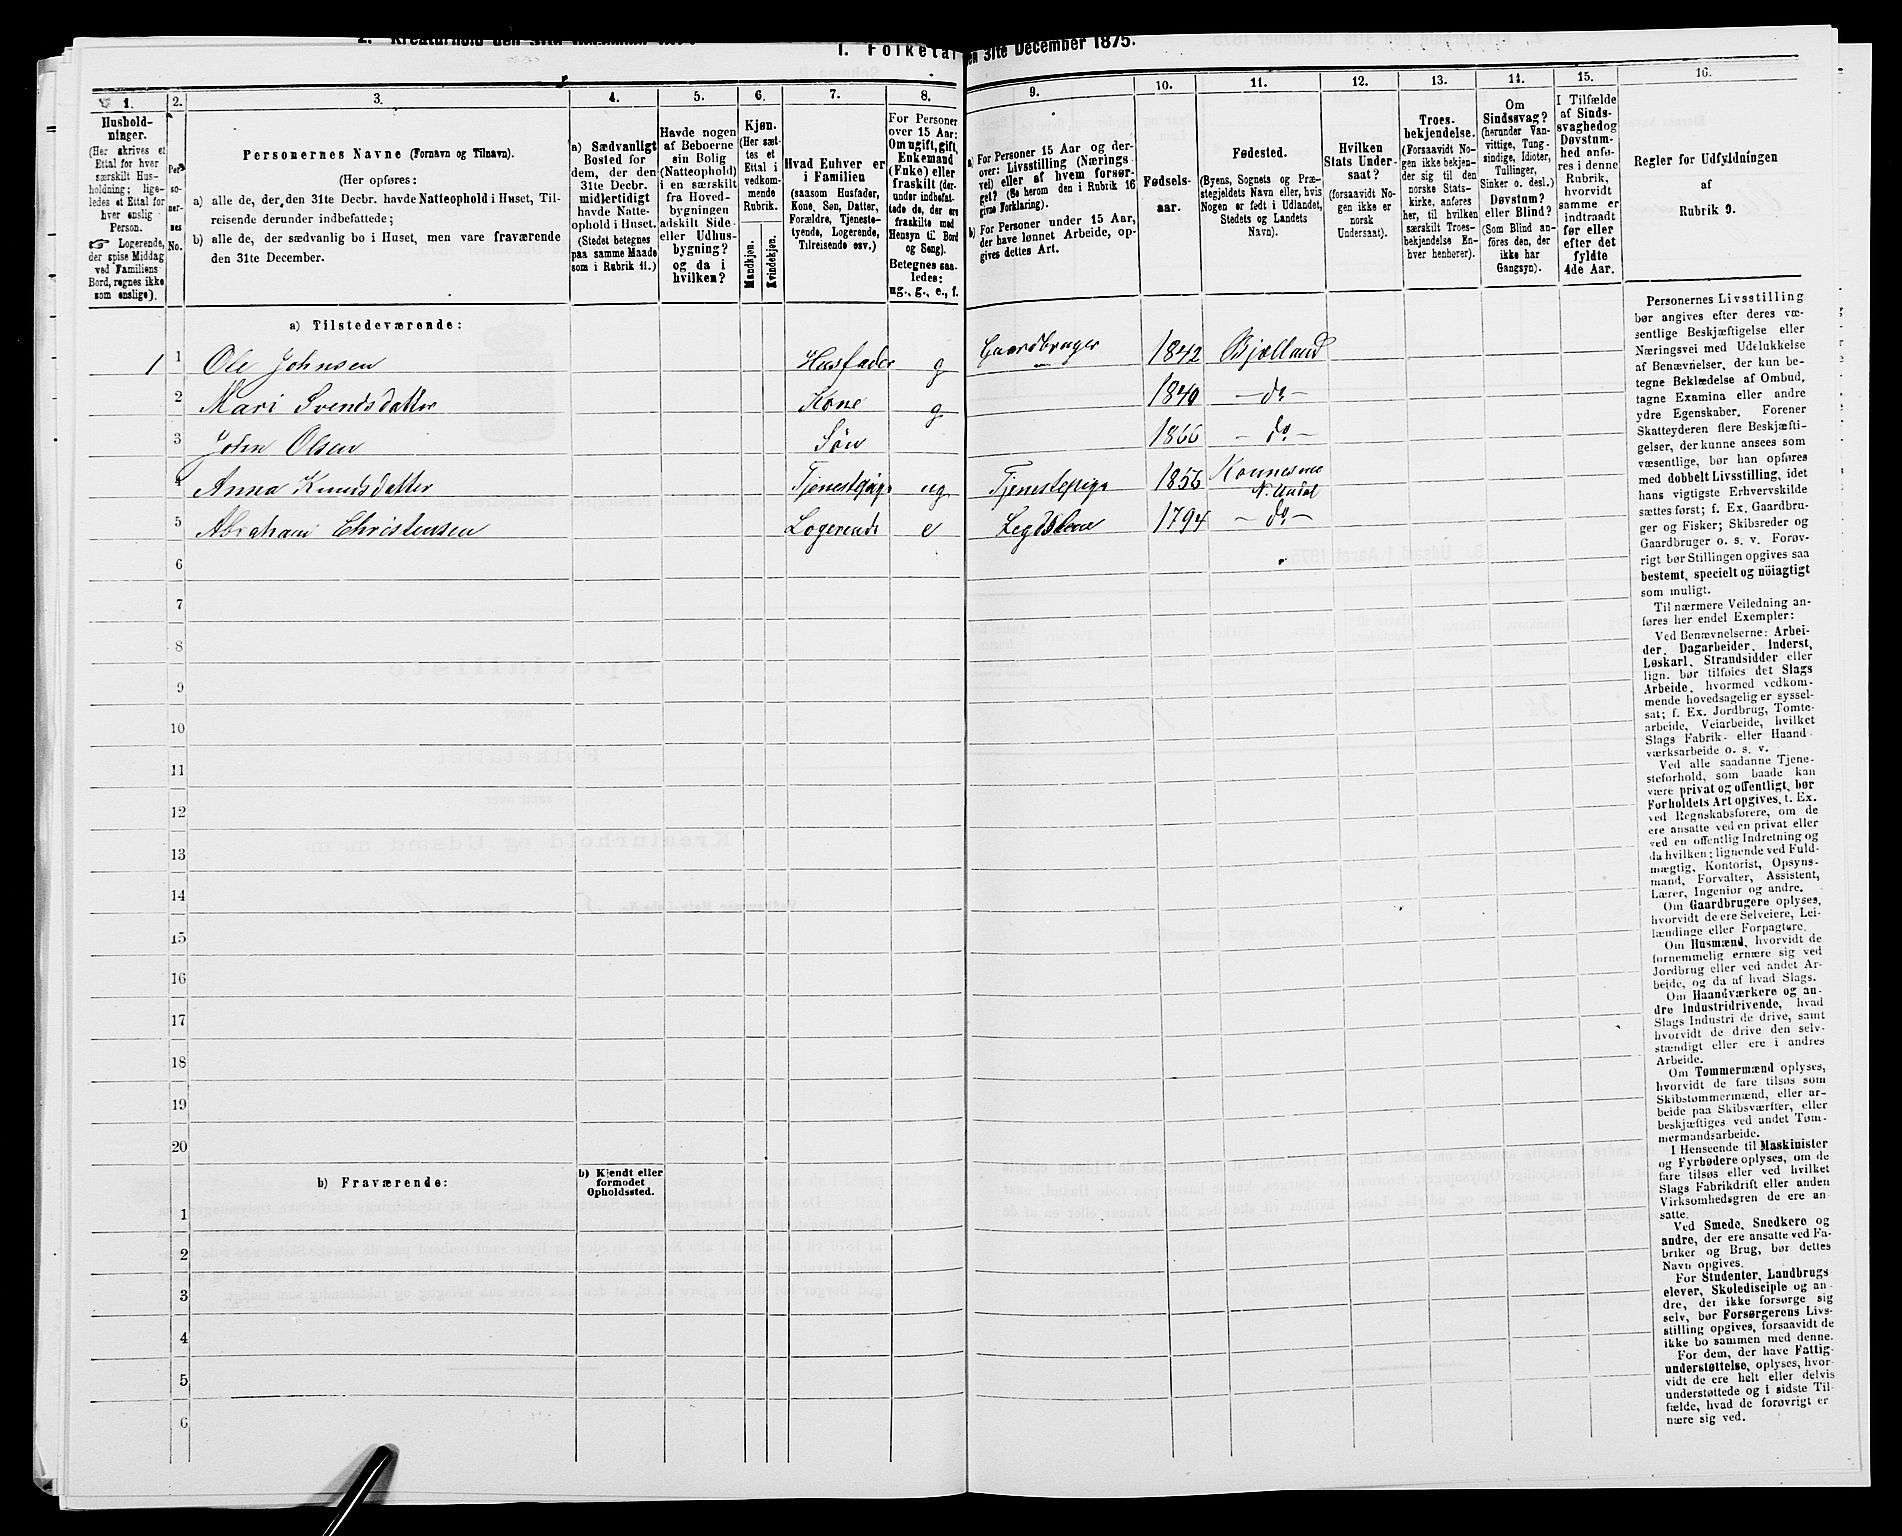 1. Folketal den 31te December 1875.
1.
Hushold-
ninger.
(Her skrives et
Ettal for hver
særskilt Hus-
holdning; lige-
ledes et Ettal for
hver enslig
Person.
Logerende,
der spise Middag
ved Familiens
Bord, regnes ikke
som enslige).
2.
Per-
so-
ner-
nes
No.
3.
Personernes Navne (Fornavn og Tilnavn).
(Her opføres:
a) alle de, der den 31te Decbr. havde Natteophold i Huset, Til-
reisende derunder indbefattede;
b) alle de, der sædvanlig bo i Huset, men vare fraværende
den 31te December.
4.
a) Sædvanligt
Bosted for
dem, der den
31te Decbr.
midlertidigt
havde Natte-
ophold i Huset.
(Stedet betegnes
paa samme Maade
som i Rubrik 11.)
5.
Havde nogen
af Beboerne
sin Bolig
(Natteophold)
i en særskilt
fra Hoved-
bygningen
adskilt Side-
eller Udhus-
bygning?
og da i
hvilken?
6.
Kjøn.
(Her sæt-
tes et
Ettal i
vedkom-
mende
Rubrik.
Mandkjøn.
Kvindekjøn.
7.
Hvad Enhver er
i Familien
(saasom Husfader,
Kone, Søn, Datter,
Forældre, Tjeneste-
tyende, Logerende,
Tilreisende osv.)
8.
For Personer
over 15 Aar:
Om ugift, gift,
Enkemand
(Enke) eller
fraskilt (der-
under indbefat-
tede de, der ere
fraskilte med
Hensyn til Bord
og Seng).
Betegnes saa-
ledes:
ug., g., e., f.
9.
a) For Personer 15 Aar og der-
over: Livsstilling (Nærings-
vei) eller af hvem forsør-
get? (Se herom den i Rubrik 16
givne Forklaring).
b) For Personer under 15 Aar,
der have lønnet Arbeide, op-
gives dettes Art.
10.
Fødsels-
aar.
11.
Fødested.
(Byens, Sognets og Præ-
stegjeldets Navn eller, hvis
Nogen er født i Udlandet,
Stedets og Landets
Navn).
12.
Hvilken
Stats Under-
saat?
(forsaavidt No-
gen ikke er
norsk
Undersaat).
13.
Troes-
bekjendelse.
(Forsaavidt No-
gen ikke bekjen-
der sig til den
norske Stats-
kirke, anføres
her, til hvilken
særskilt Troes-
bekjendelse En-
hver henhører).
14.
Om
Sindssvag?
(herunder Van-
vittige, Tung-
sindige, Idioter,
Tullinger,
Sinker o. desl.)
Døvstum?
eller Blind?
(Som Blind an-
føres den, der
ikke har
Gangsyn).
15.
I Tilfælde
af Sinds-
svaghed og
Døvstum-
hed anfø-
res i denne
Rubrik,
hvorvidt
samme er
indtraadt
før eller
efter det
fyldte
4de Aar.
16.
Regler for Udfyldningen
af
Rubrik 9.
a) Tilstedeværende:
1 1 Ole Johnsen Husfader g Gaardbruger 1842 Bjelland
2 Mari Svendsdatter Kone g 1840 - do -
3 John Olsen Søn 1866 - do -
4 Anna Knudsdatter Tjenestepige ug Tjenestepige 1856 Konnesmo
N. Undal
5 Abraham Christensen Logerende e Legdslem 1794 - do -
6
7
8
9
10
11
12
13
14
15
16
17
18
19
20
b) Fraværende:
b) Kjendt eller
formodet
Opholdssted.
1
2
3
4
5
6
Personernes Livsstilling
bør angives efter deres væ-
sentlige Beskjæftigelse eller
Næringsvei med Udelukkelse
af Benævnelser, der kun be-
tegne Beklædelse af Ombud,
tagne Examina eller andre
ydre Egenskaber. Forener
Skatteyderen flere Beskjæfti-
gelser, der kunne ansees som
væsentlige, bør han opføres
med dobbelt Livsstilling, idet
hans vigtigste Erhvervskilde
sættes først; f. Ex. Gaardbru-
ger og Fisker; Skibsreder og
Gaardbruger o. s. v. Forøv-
rigt bør Stillingen opgives saa
bestemt, specielt og nöiagtigt
som muligt.
Til nærmere Veiledning an-
føres her endel Exempler:
Ved Benævnelserne: Arbei-
der, Dagarbeider, Inderst,
Løskarl, Strandsidder eller
lign. bør tilføies det Slags
Arbeide, hvormed vedkom-
mende hovedsagelig er syssel-
sat; f. Ex. Jordbrug, Tomte-
arbeide, Veiarbeide, hvilket
Slags Fabrik- eller Haand-
værksarbeide o. s. v.
Ved alle saadanne Tjene-
steforhold, som baade kan
være privat og offentligt, bør
Forholdets Art opgives, t. Ex.
ved Regnskabsførere, om de
ere ansatte ved en privat eller
ved en offentlig Indretning og
da hvilken; lignende ved Fuld-
mægtig, Kontorist, Opsyns-
mand, Forvalter, Assistent,
Lærer, Ingeniør og andre.
Om Gaardbrugere oplyses,
hvorvidt de ere Selveiere, Lei-
lændinge eller Forpagtere.
Om Husmænd, hvorvidt de
fornemmelig ernære sig ved
Jordbrug eller ved andet Ar-
beide, og da af hvad Slags.
Om Haandværkere og an-
dre Industridrivende, hvad
Slags Industri de drive, samt
hvorvidt de drive den selv-
stændigt eller ere i andres
Arbeide.
Om Tømmermænd oplyses,
hvorvidt de fare tilsøs som
Skibstømmermænd, eller ar-
beide paa Skibsværfter, eller
beskjæftiges ved andet Tøm-
mermandsarbeide.
I Henseende til Maskinister
og Fyrbødere oplyses, om de
fare tilsøs eller ved hvilket
Slags Fabrikdrift eller anden
Virksomhedsgren de ere an-
satte.
Ved Smede, Snedkere og
andre, der ere ansatte ved Fa-
briker og Brug, bør dettes
Navn opgives.
For Studenter, Landbrugs-
elever, Skoledisciple og an-
dre, der ikke forsørge sig
selv, bør Forsørgerens Livs-
stilling opgives, forsaavidt de
ikke bo sammen med denne.
For dem, der have Fattig-
understøttelse, oplyses, hvor-
vidt de ere helt eller delvis
understøttede og i sidste Til-
fælde, hvad de forøvrigt er-
nære sig ved.